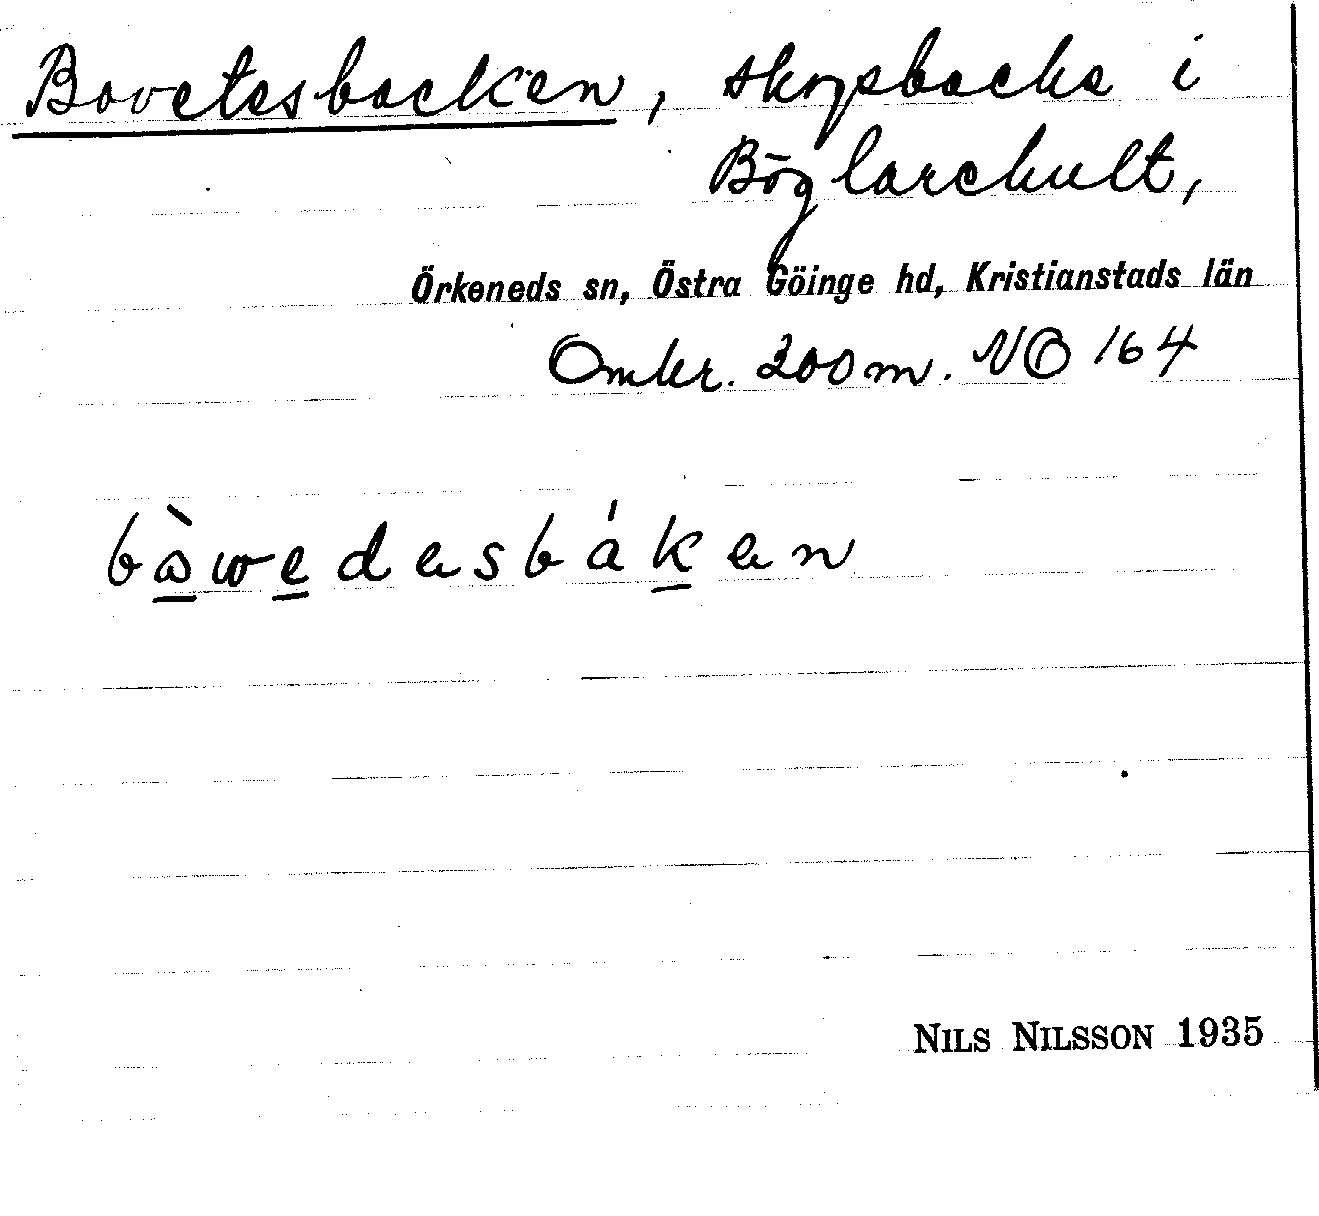 Bovetesbacken, skogsbacke i
Böglarehult,
Örkeneds sn, Östra Göinge hd, Kristianstads län
Omkr. 300 m. NO 164
bàwedesbákan
NILS NILSSON 1935